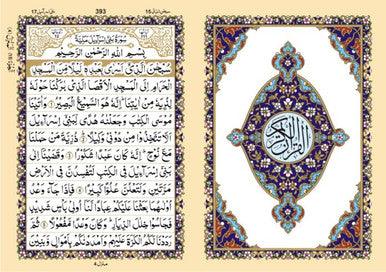 سبحن الذی 15
393
بنی اسرآءیل 17
القرآن الكريم
سُوْرَةُ بَنِيْٓ اِسْرَآءِيْلَ مَكِّيَّةٌ
بِسْمِ اللّٰهِ الرَّحْمٰنِ الرَّحِيْمِ
سُبْحٰنَ الَّذِيْٓ اَسْرٰى بِعَبْدِهٖ لَيْلًا مِّنَ الْمَسْجِدِ
الْحَرَامِ اِلَى الْمَسْجِدِ الْاَقْصَا الَّذِيْ بٰرَكْنَا حَوْلَهٗ
لِنُرِيَهٗ مِنْ اٰيٰتِنَا اِنَّهٗ هُوَ السَّمِيْعُ الْبَصِيْرُ ۝ وَاٰتَيْنَا
مُوْسَى الْكِتٰبَ وَجَعَلْنٰهُ هُدًى لِّبَنِيْٓ اِسْرَآءِيْلَ
اَلَّا تَتَّخِذُوْا مِنْ دُوْنِيْ وَكِيْلًا ۝ ذُرِّيَّةَ مَنْ حَمَلْنَا
مَعَ نُوْحٍ اِنَّهٗ كَانَ عَبْدًا شَكُوْرًا ۝ وَقَضَيْنَآ اِلٰى
بَنِيْٓ اِسْرَآءِيْلَ فِي الْكِتٰبِ لَتُفْسِدُنَّ فِي الْاَرْضِ
مَرَّتَيْنِ وَلَتَعْلُنَّ عُلُوًّا كَبِيْرًا ۝ فَاِذَا جَآءَ وَعْدُ
اُوْلٰىهُمَا بَعَثْنَا عَلَيْكُمْ عِبَادًا لَّنَآ اُولِيْ بَاْسٍ شَدِيْدٍ
فَجَاسُوْا خِلٰلَ الدِّيَارِ وَكَانَ وَعْدًا مَّفْعُوْلًا ۝ ثُمَّ
رَدَدْنَا لَكُمُ الْكَرَّةَ عَلَيْهِمْ وَاَمْدَدْنٰكُمْ بِاَمْوَالٍ وَّبَنِيْنَ
منزل 4